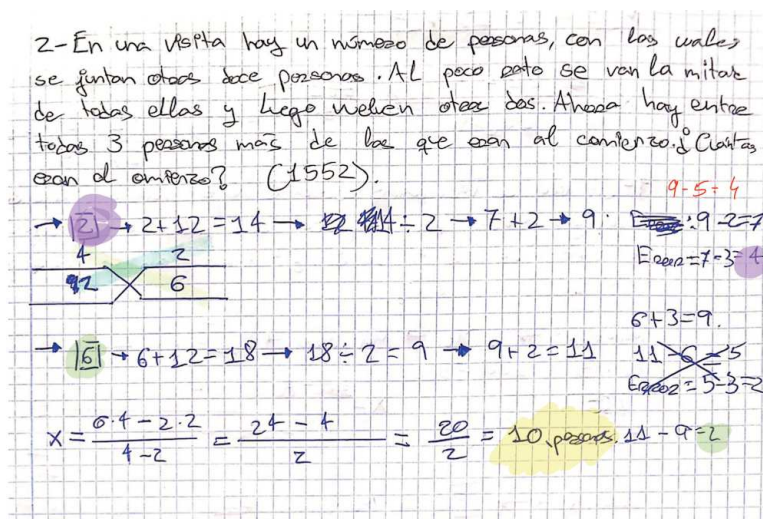 2-En una visita hay un número de personas, con las cuales
se juntan otras doce personas. Al poco rato se van la mitad
de todas ellas y luego vuelven otras dos. Ahora hay entre
todas 3 personas más de las que eran al comienzo. ¿Cuántas
eran al comienzo? (1552).
9-5=4
→ |2| → 2+12=14 → 14÷2 → 7+2 → 9. : 9-2=7
4 2 Error=7-3=4
2 6
6+3=9.
→ |6| → 6+12=18 → 18÷2=9 → 9+2=11 11-6=5
Error=5-3=2
x = 6·4-2·2 / 4-2 = 24-4 / 2 = 20 / 2 = 10 personas. 11-9=2